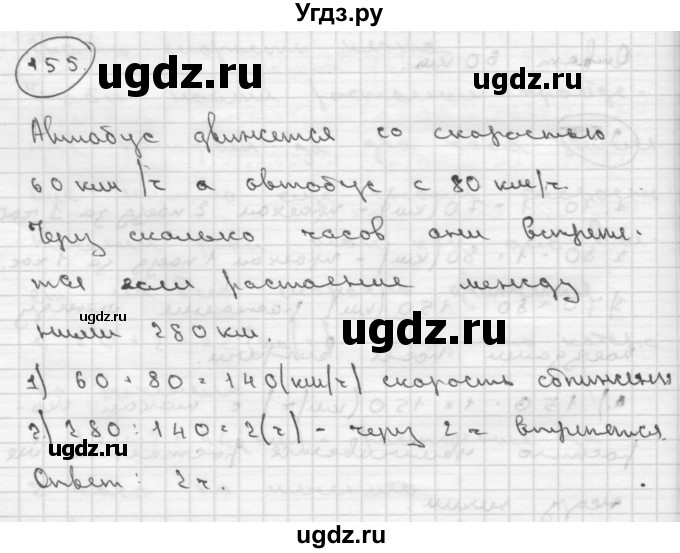 Угдз.ру
155.
ugdz.ru
ugdz.ru
Автобус движется со скоростью
60 км/ч а автобус с 80 км/ч.
Через сколько часов они встрете-
тся если растоение между
ugdz.ru
ними 280 км.
ugdz.ru
1) 60 + 80 = 140 (км/ч) скорость сближения
2) 280 : 140 = 2 (ч) - через 2 ч встретятся.
Ответ: 2 ч.
ugdz.ru